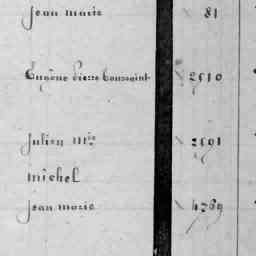 Jean marie × 81
Eugène Pierre Toussaint × 2510
Julien Mie × 2591
michel
Jean marie × 4769